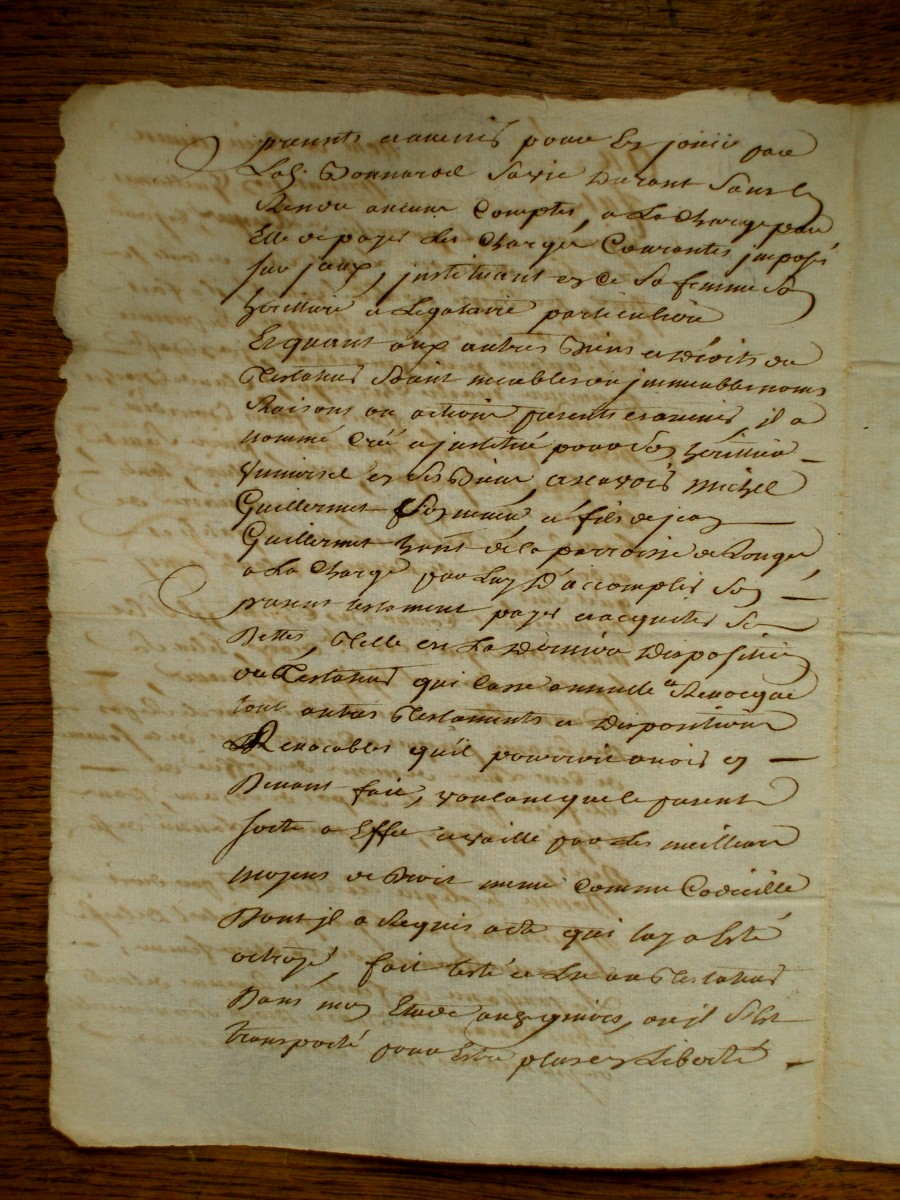 presents et avenirs pour en jouir par
Lad. Bonnarod Savie Durant Sans En
Rendre aucune Comptes, a La Charge pour
Elle de payer Les Charges Courantes jmposés
sur jceux, jnstituant en ce Sa femme Son
heritiere a Legataire particuliere
Et quant aux autres Biens et Droits du
Testateur Soient meubles ou jmmeubles noms
Raisons ou actions presents et avenirs, il a
nommé Créé et jnstitué pour Son heritier
Vniversel en Ses Biens, et Scavoir Michel
Guillermet Son neveu et fils de jean
Guillermet hant de la parroisse de
a La Charge par Luy D'accomplir Son
present testament payer et acquiter Ses
Dettes, Telle est La Derniere Disposition
du Testateur qui Casse annulle et Revocque
tout autres Testaments et Dispositions
Revocables qu'il pourroit avoir cy
Devant fait, voulant que le present
sorte a Effet et vaille par les meilleurs
moyens de Droit meme Comme Codicille
Dont jl a Requis acte qui luy a Esté
octroyé, fait testé et Lu au Testateur
Dans mon Etude, ou jl S'est
transporté pour Estre plus en Liberté